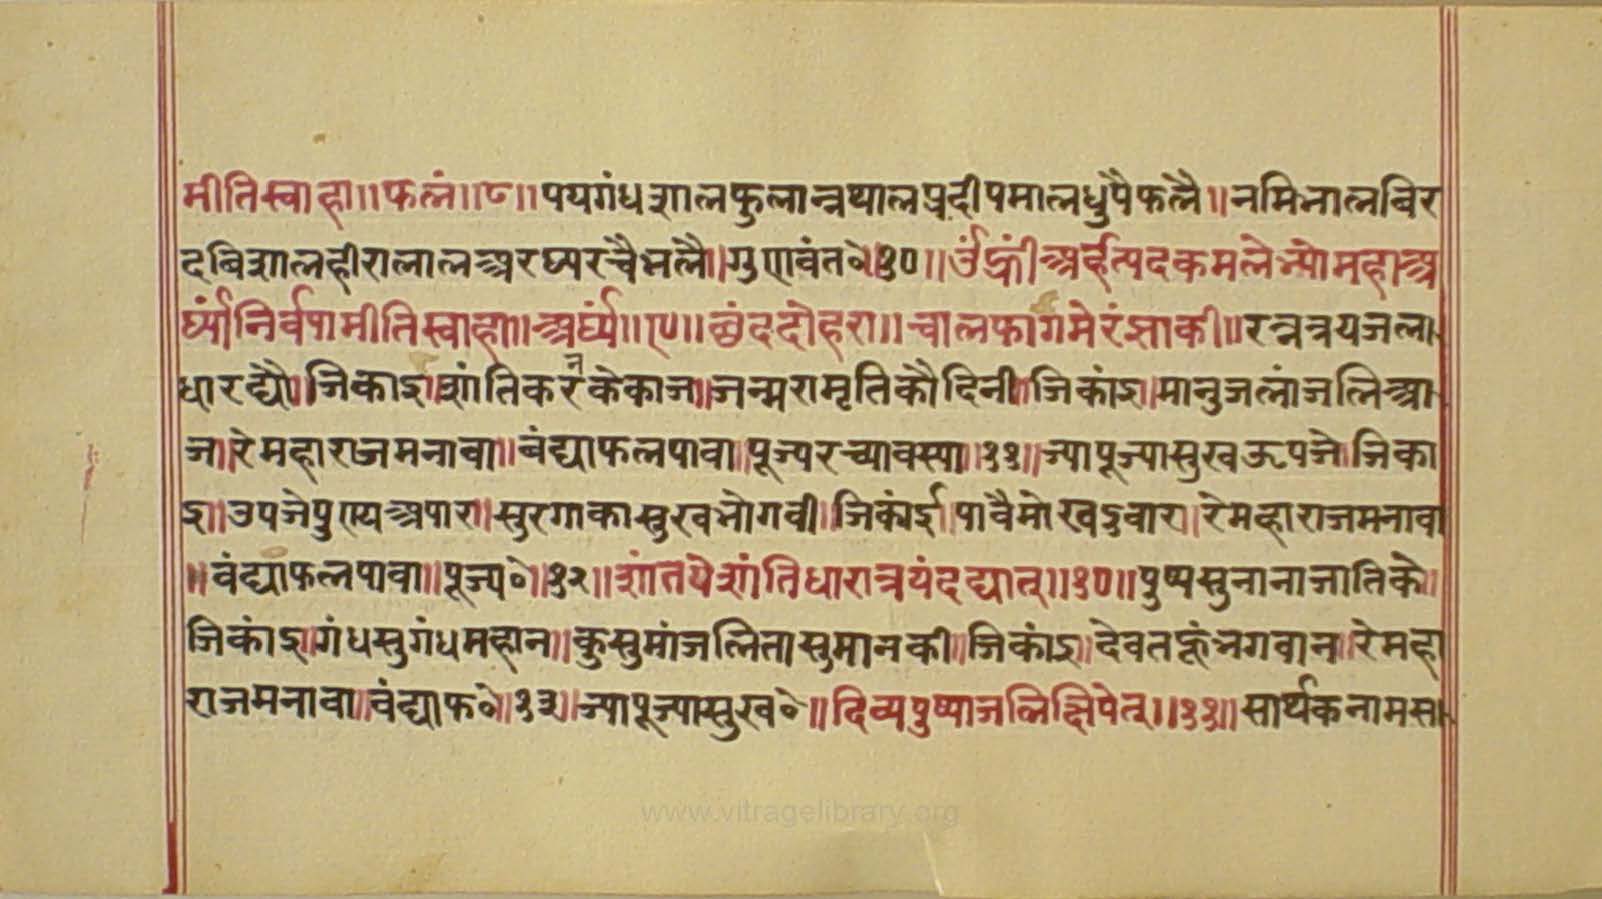 मीतिस्वाहा॥फलं॥८॥पयगंधशालफुलान्नथालप्रदीपमालधुपैफलै॥नमिनालबिर
दबिशालहीरालालअरघ्यरचैभलै॥गुणवंत०॥१०॥ॐह्रीं अर्हत्पदकमलेभ्योमहाअ
र्घ्यंनिर्वपामीतिस्वाहा॥अर्घ्यं॥९॥छंददोहरा॥चालफागमेरंञाकी॥रत्नत्रयजल
धारद्यौ॥जिकांइ॥शांतिकरनकेकाज॥जन्मरामृतिकौदिनी॥जिकांइ॥मानुजलांजलिआ
ज॥रेमहाराजमनावा॥बंद्याफलपावा॥पूज्यरच्यावस्या॥११॥ज्यापूज्यासुखऊपजे॥जिका
इ॥उपजेपुण्यअपार॥सुरगाकासुखभोगवी॥जिकांई॥पावैमोखदुवार॥रेमहाराजमनावा
॥वंद्याफलपावा॥पूज्य०॥१२॥शांतयेशांतिधारात्रयंदद्यात्॥१०॥पुष्पसुनानाजातिके॥
जिकांइ॥गंधसुगंधमहान॥कुसुमांजलितासुमानकी॥जिकांइ॥देवतहूंभगवान॥रेमहा
राजमनावा॥वंद्याफ०॥१३॥ज्यापूज्यासुख०॥दिव्यपुष्पाजलिक्षिपेत्॥११॥सार्थकनामस
www.vitragelibrary.org